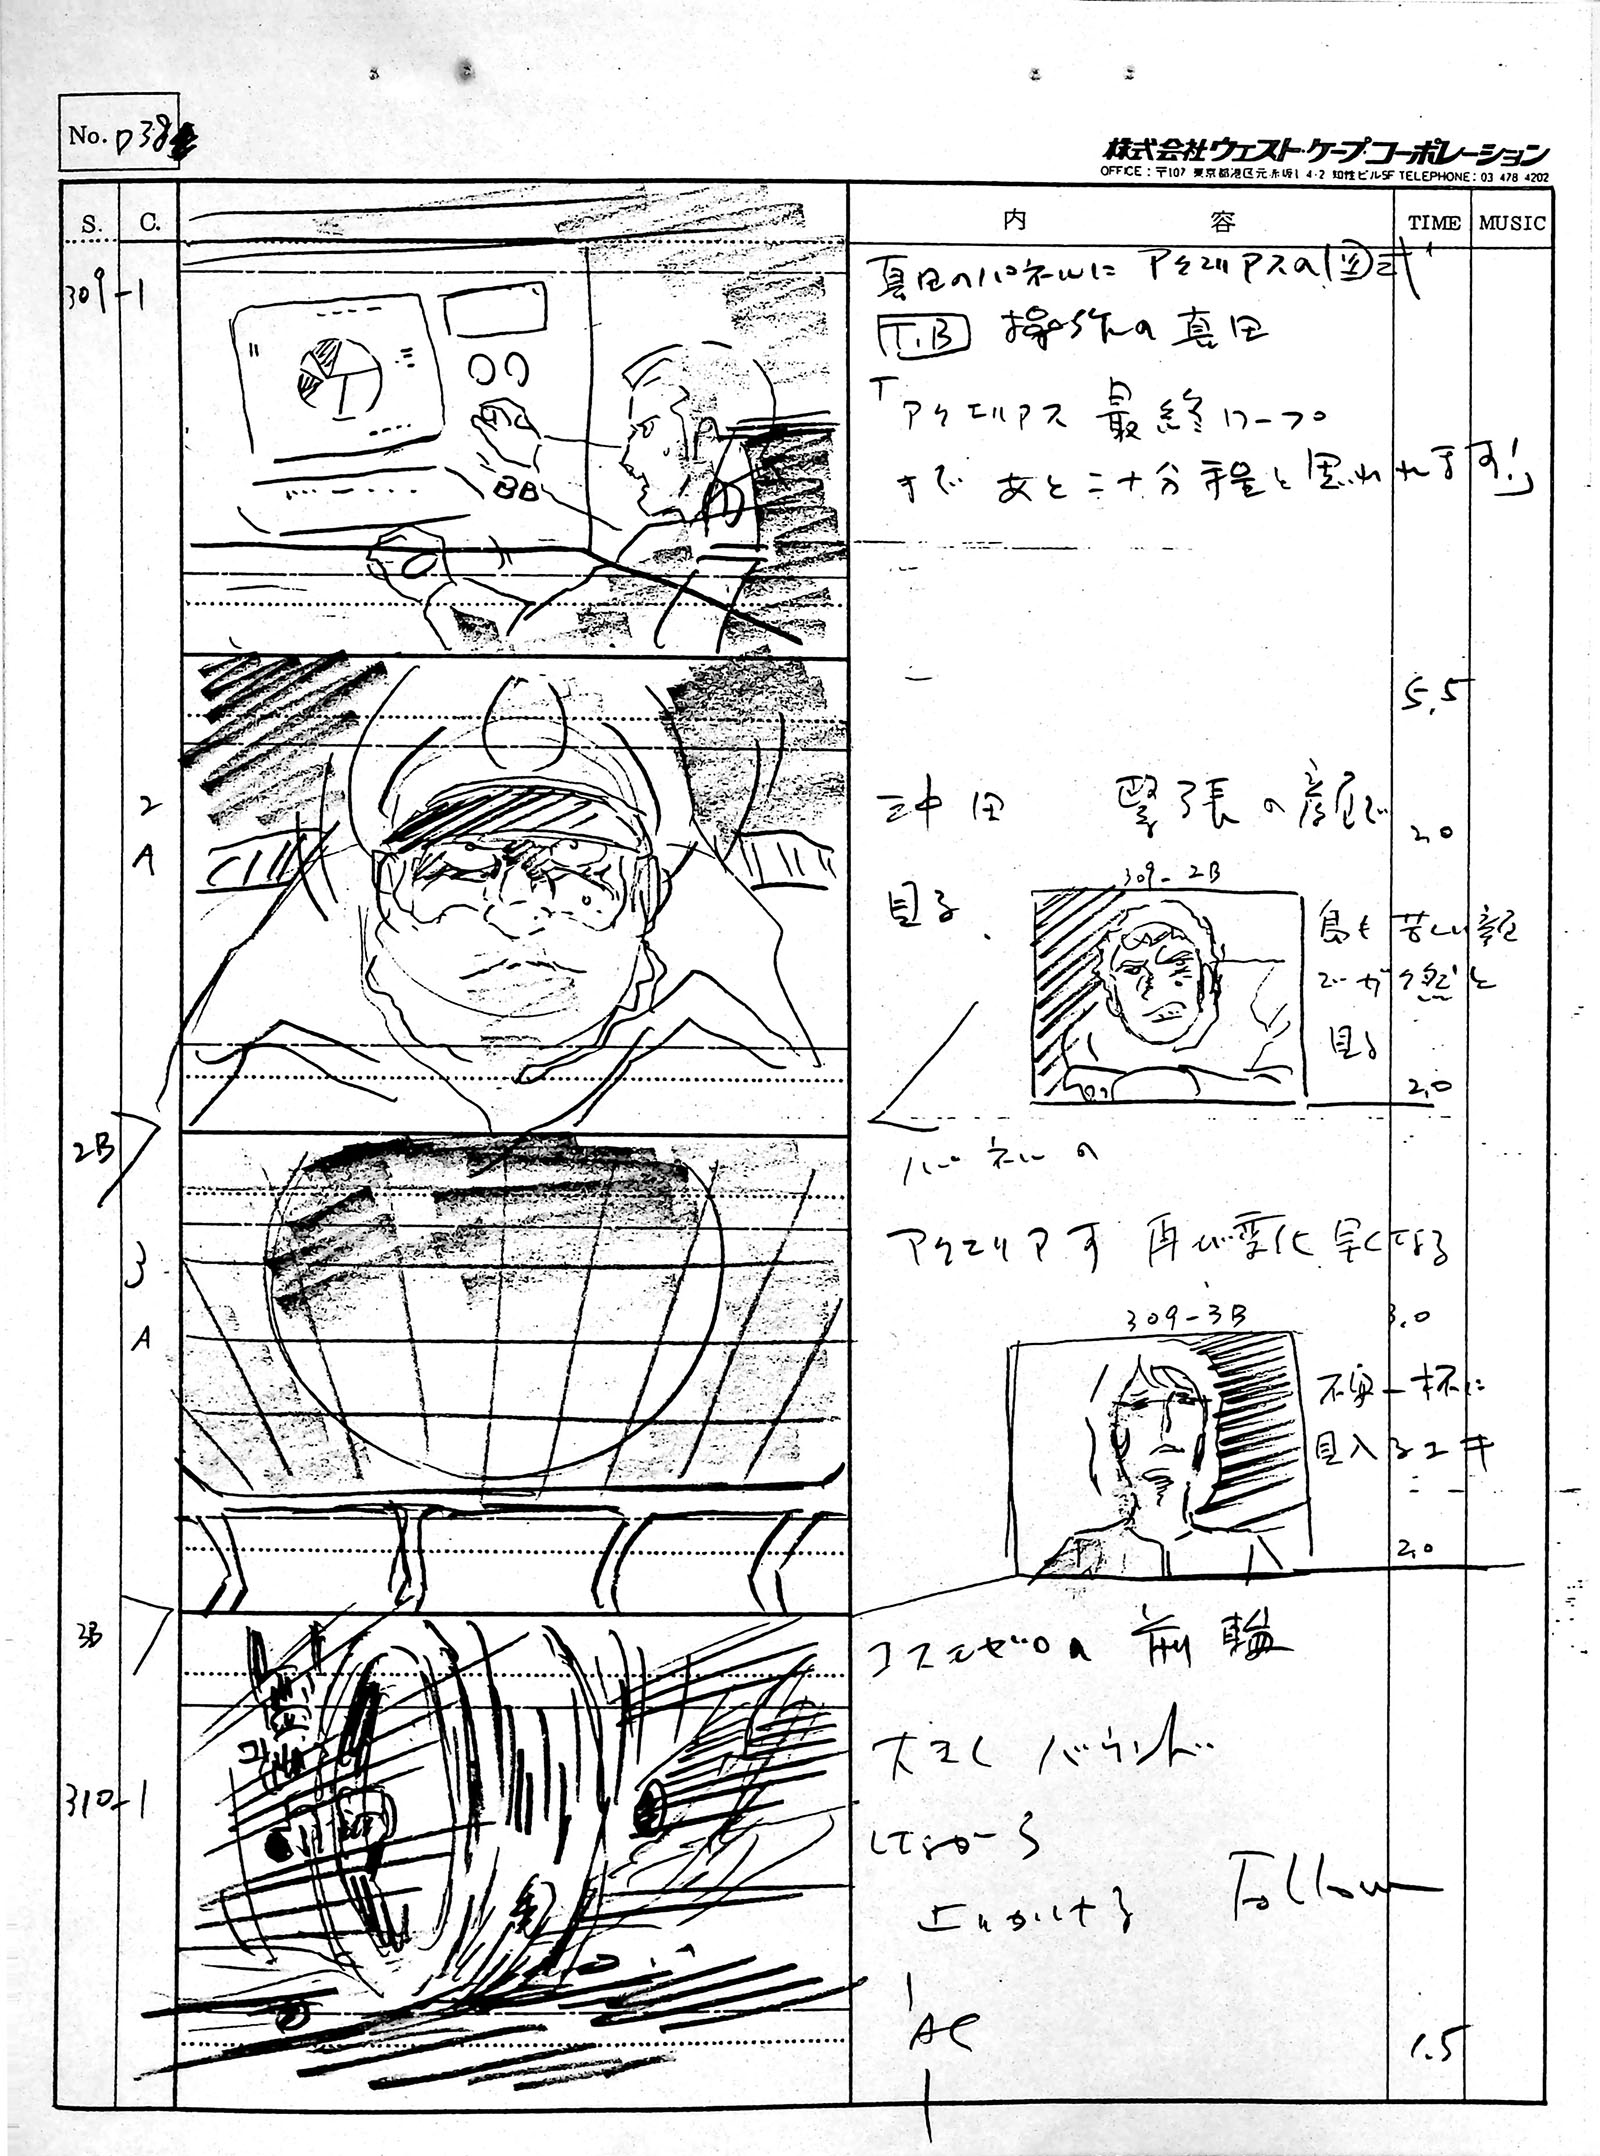 No. D38
株式会社ウェスト・ケープ・コーポレーション
OFFICE：〒107 東京都港区元赤坂1-4-2 知性ビル5F TELEPHONE：03 478 4202
S. C. 内容 TIME MUSIC
309-1
真田のパネルに アクエリアスの 図式
T.B 操作の真田
「アクエリアス 最終ワープ
まで あと二十分程と思われます！」
BB
5.5
2
A
沖田 緊張の顔で
2.0
見る
309-2B
島も苦しい顔
でが 然と
見る
2.0
2B
パネルの
3
A
アクエリアす 再び変化 早くなる
309-3B
3.0
不安一杯に
見入るユキ
2.0
3B
310-1
コスモゼロの 前輪
大きく バウンド
しながら
上りかける
Follow
AC
1.5